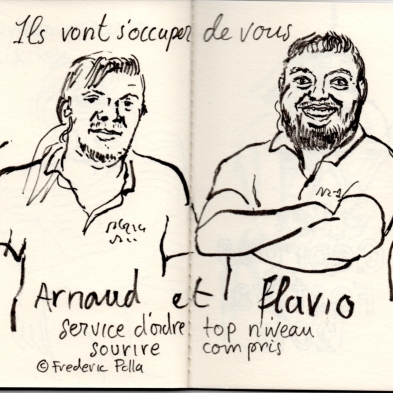 Ils vont s'occuper de vous
Arnaud et Flavio
service d'ordre top niveau
sourire compris
© Frederic Pella